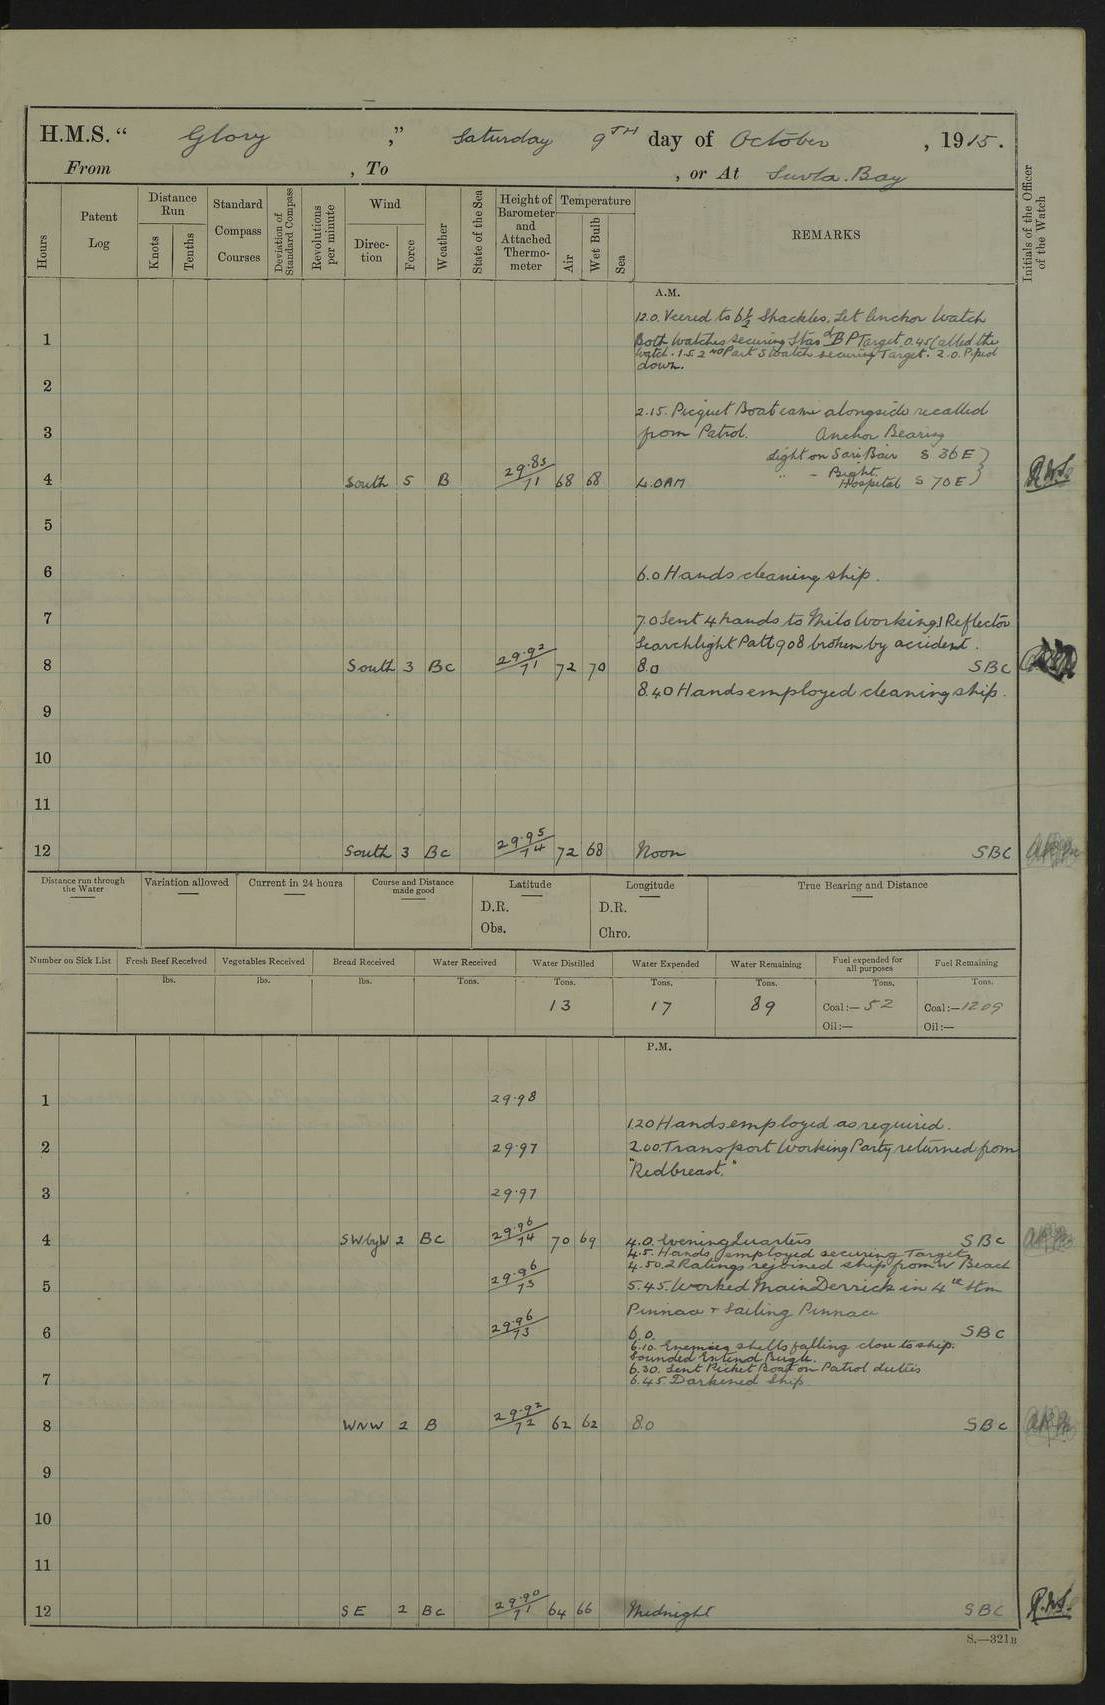 H.M.S. “ Glory ,” Saturday 9TH day of October , 1915.
From , To , or At Suvla. Bay
Hours
Patent Log
Distance Run
Knots
Tenths
Standard Compass Courses
Deviation of Standard Compass
Revolutions per minute
Wind
Direc-tion
Force
Weather
State of the Sea
Height of Barometer and Attached Thermo-meter
Temperature
Air
Wet Bulb
Sea
REMARKS
Initials of the Officer of the Watch
A.M.
12.0. Veered to 6½ Shackles, Set Anchor Watch
1 Both Watches securing Star'd B P Target. 0.45 Called the
Watch. 1.5. 2ND Part S Watch securing Target. 2.0. Piped
down.
2
2.15. Picquet Boat came alongside recalled
3 from Patrol. Anchor Bearing
Light on Sari Bair S 36 E
4 South 5 B 29.85/71 68 68 4.0 AM " - Bight. Hospital S 70 E
5
6 6.0 Hands cleaning ship.
7 7.0 Sent 4 hands to Milo Working. 1 Reflector
Searchlight Patt 908 broken by accident.
8 South 3 Bc 29.92/71 72 70 8.0 SBC
8.40 Hands employed cleaning ship.
9
10
11
12 South 3 Bc 29.95/74 72 68 Noon SBC
Distance run through the Water —
Variation allowed —
Current in 24 hours —
Course and Distance made good —
Latitude
D.R.
Obs.
Longitude
D.R.
Chro.
True Bearing and Distance —
Number on Sick List
Fresh Beef Received lbs.
Vegetables Received lbs.
Bread Received lbs.
Water Received Tons.
Water Distilled Tons. 13
Water Expended Tons. 17
Water Remaining Tons. 89
Fuel expended for all purposes Tons. Coal:— 52 Oil:—
Fuel Remaining Tons. Coal:— 1209 Oil:—
P.M.
1 29.98
1.20 Hands employed as required.
2 29.97 2.00. Transport Working Party returned from
"Redbreast."
3 29.97
4 SWbyW 2 BC 29.96/74 70 69 4.0. Evening Quarters SBC
4.5. Hands employed securing Target
4.50. 2 Ratings rejoined ship from W Beach
5 29.96/73 5.45. Worked Main Derrick in 4th Stm
Pinnace + Sailing Pinnace
6 29.96/73 6.0. SBC
6.10. Enemies shells falling close to ship.
Sounded Extend Bugle.
6.30. Sent Picket Boat on Patrol duties
7 6.45. Darkened Ship
8 WNW 2 B 29.92/72 62 62 8.0 SBC
9
10
11
12 SE 2 Bc 29.90/71 64 66 Midnight SBC
S.—321B